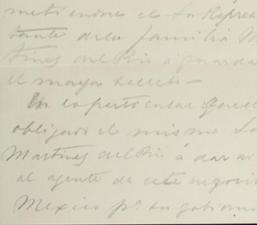 metiendose el Sr Repres
tante de la familia M
tinez del Rio á guardar
el mayor
En lo particular queda
obligado el mismo Sr
Martinez del Rio á dar av
al agente de este negocio
Mexico pª su gobierno